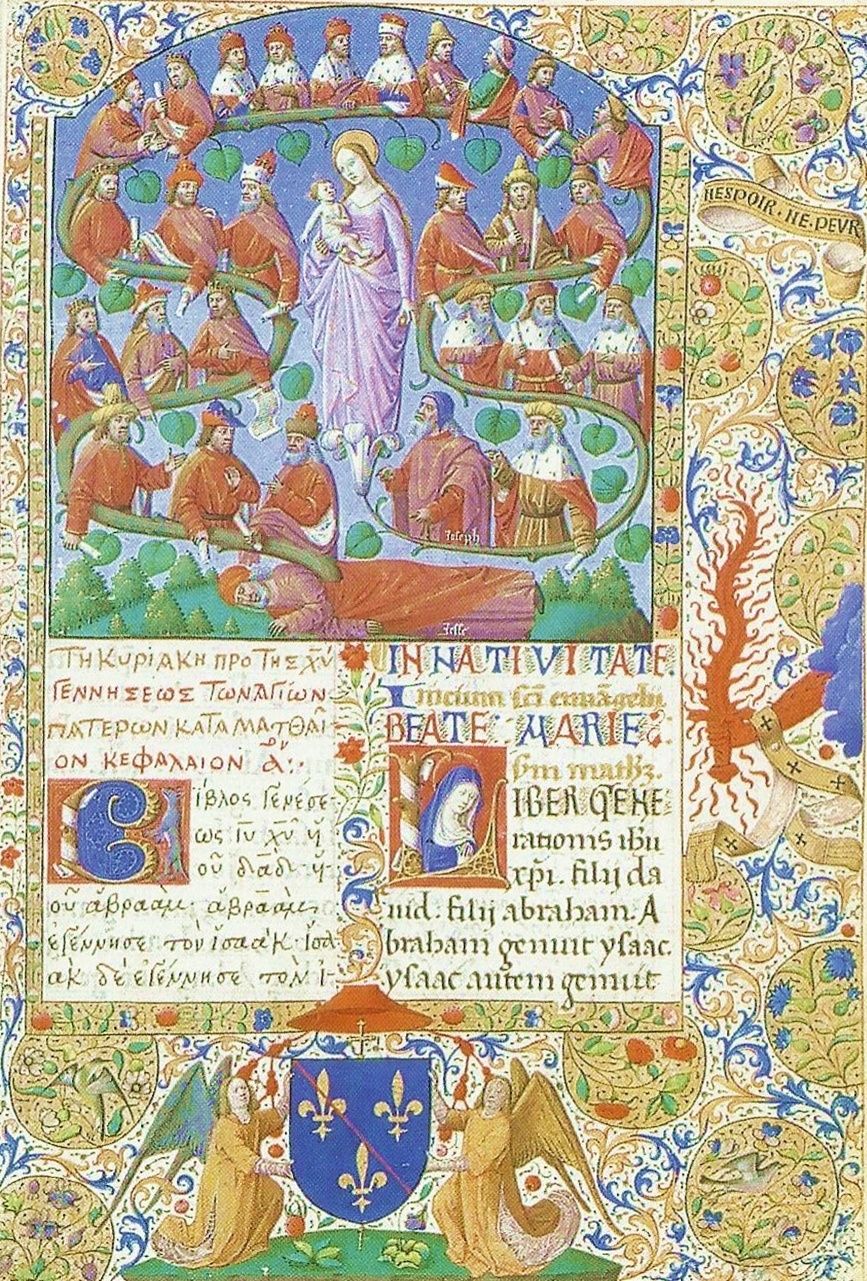 NESPOIR · NE · PEVR
Joseph
Jesse
ΤΗ ΚΥΡΙΑΚΗ ΠΡΟ ΤΗΣ ΧῩ
ΓΕΝΝΗΣΕΩΣ ΤΩΝ ΑΓΙΩΝ
ΠΑΤΕΡΩΝ ΚΑΤΑ ΜΑΤΘΑΙ
ΟΝ ΚΕΦΑΛΑΙΟΝ Α̅:·
Βίβλος γενέσε
ως ἰῡ χῡ ὑ
οῦ δᾱδ ὑ
οῦ ἀβραάμ· ἀβραὰμ
ἐγέννησε τὸν ἰσαάκ· ἰσα
ὰκ δὲ ἐγέννησε τὸν ἰ
IN NATIVITATE
Inicium sc̄i euāgelii
BEATE MARIE
sm̄ math3.
LIBER GENE
rationis ihu
xp̄i. filij da
uid: filij abraham. A
braham genuit ysaac.
ysaac autem genuit